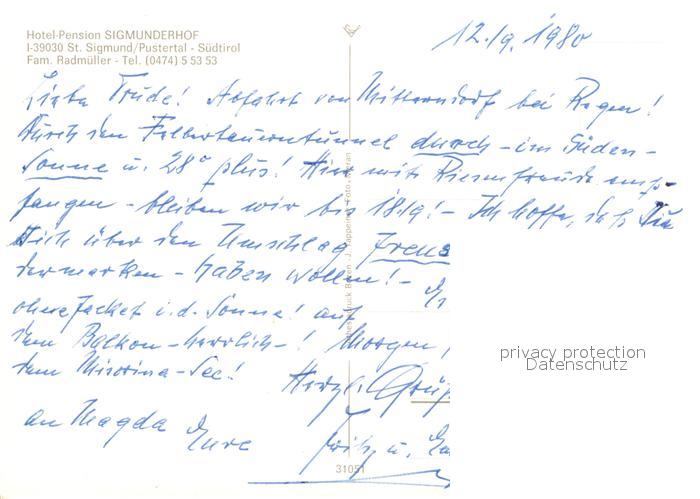 Hotel-Pension SIGMUNDERHOF
I-39030 St. Sigmund/Pustertal - Südtirol
Fam. Radmüller - Tel. (0474) 5 53 53
12./9. 1980
Liebe Trude! Abfahrt von Mitterndorf bei Regen!
Durch den Felbertauerntunnel durch - im Süden -
Sonne u. 28° plus! Hier mit Riesenfreude emp-
fangen - bleiben wir bis 18./9! - Ich hoffe, daß Du
Dich über den Umschlag
dermarken - haben wollen! -
ohne Jacket i. d. Sonne! auf
dem Balkon - herrlich - ! Morgen,
dem Misurina-See!
Herzl. Grüß
an Magda Eure Fritz u.
31051
privacy protection
Datenschutz